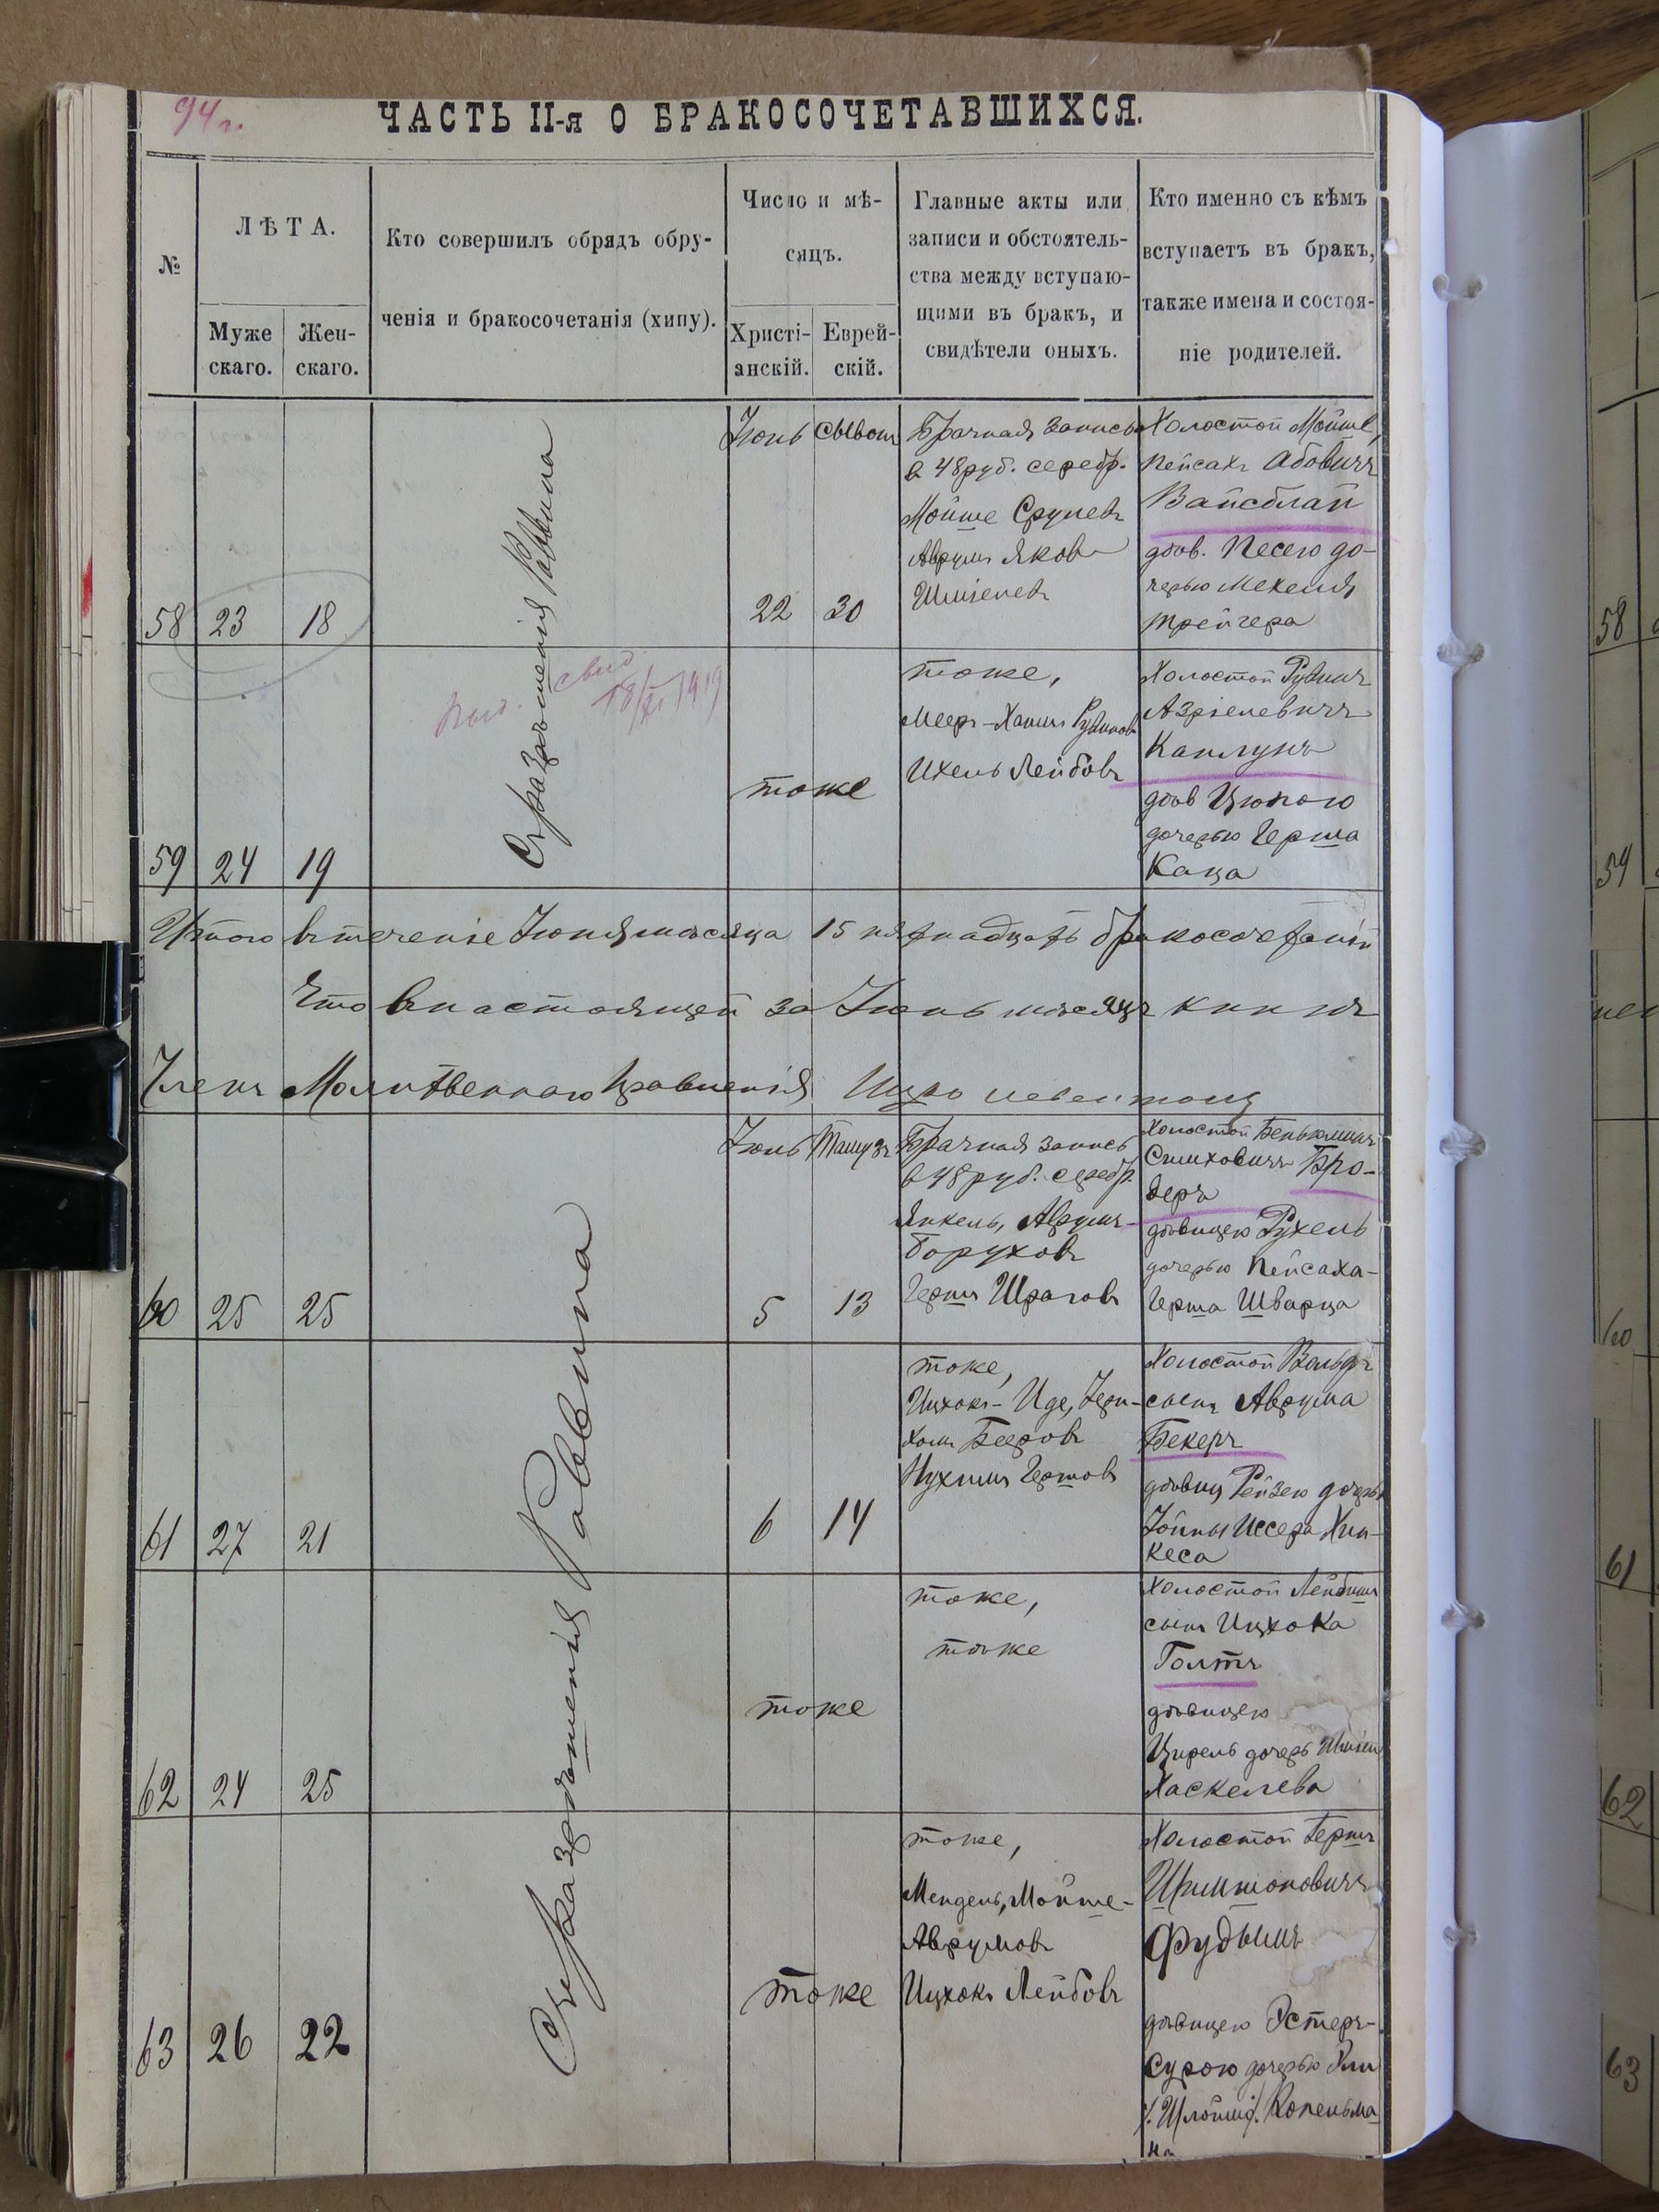 94 г.
ЧАСТЬ II-я О БРАКОСОЧЕТАВШИХСЯ.
№
ЛѢТА.
Муже
скаго.
Жен-
скаго.
Кто совершилъ обрядъ обру-
ченія и бракосочетанія (хипу).
Число и мѣ-
сяцъ.
Христі-
анскій.
Еврей-
скій.
Главные акты или
записи и обстоятель-
ства между вступаю-
щими въ бракъ, и
свидѣтели оныхъ.
Кто именно съ кѣмъ
вступаетъ въ бракъ,
также имена и состоя-
ніе родителей.
58
23
18
Съ разрѣшенія Раввина
Іюнь
22
30
Брачная запись
в 48 руб. серебр.
Мойше Срулевъ
Аврумъ Яков
Шміелевъ
Холостой Мойше,
Пейсахъ Абовичъ
Вайсблай
дѣв. Песею до-
черью Мехеля
Трейгера
59
24
19
18/XI 1919
тоже
тоже,
Меер-Хаимъ Рувинов
Ихель Лейбовъ
Холостой Рувинъ
Азріелевичъ
Каплунъ
дѣв Ципою
дочерью Герша
Каца
Итого втеченіе Іюня мѣсяца 15 пятнадцать бракосочетаній
Что в настоящей за Іюнь мѣсяцъ книгѣ
Членъ Молитвеннаго Правленія
60
25
25
Съ разрѣшенія Раввина
Тамузъ
5
13
Брачная запись
в 48 руб. серебр.
Янкель, Аврумъ-
Боруховъ
Гершъ Шраговъ
Холостой Беньюминъ
Симховичъ Бро-
деръ
дѣвицею Рухель
дочерью Пейсаха-
Герша Шварца
61
27
21
6
14
тоже,
Ицхокъ-Иде,
Бееровъ
Нухимъ Гершовъ
Холостой Вольфъ
сынъ Аврума
Бекеръ
дѣвиц Рейзею дочерью
Іойны Иссера Хин-
кеса
62
24
25
тоже
тоже,
тоже
Холостой Лейбишъ
сынъ Ицхока
Голтъ
дѣвицею
Цирель дочерь
Хаскелева
63
26
22
тоже
тоже,
Мендель, Мойше-
Аврумовъ
Ицхокъ Лейбовъ
Холостой Гершъ
Шимшоновичъ
Фудымъ
дѣвицею Эстеръ-
Сурою дочерью
Копельма
на
58
59
60
61
62
63